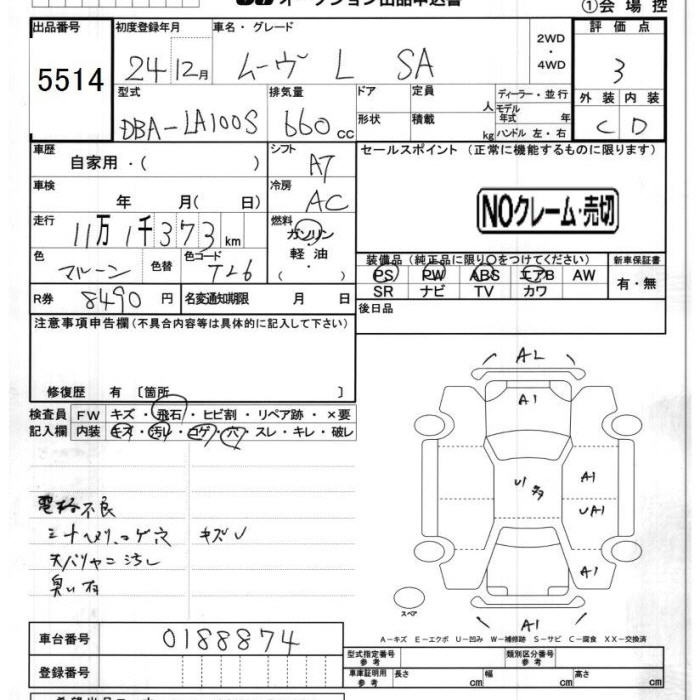 オークション出品申込書
①会場控
出品番号 初度登録年月 車名・グレード 2WD・4WD 評価点
5514 24 12月 ムーヴ L SA 3
型式 排気量 ドア 定員 人 ディーラー・並行 外装 内装
DBA-LA100S 660cc 形状 積載 kg モデル年式 年 ハンドル 左・右 C D
車歴 自家用・( ) シフト AT セールスポイント(正常に機能するものに限ります)
車検 年 月( 日) 冷房 AC
NOクレーム・売切
走行 11万1千373km 燃料 ガソリン 軽油 ( ・ )
色 マルーン 色替 色コード T26
装備品(純正品に限り○をつけてください) 新車保証書
PS PW ABS エアB AW 有・無
SR ナビ TV カワ
R券 8490円 名変通知期限 月 日 後日品
注意事項申告欄(不具合内容等は具体的に記入して下さい)
修復歴 有 〔箇所 〕
検査員 FW キズ・飛石・ヒビ割・リペア跡・×要
記入欄 内装 キズ・汚レ・コゲ・穴・スレ・キレ・破レ
AL
A1
U1 多 A1
UA1
A1
スペア
A1
電格不良
シートヘタリ、コゲ穴 キズU
天バリヤニ汚し
臭い有
A-キズ E-エクボ U-凹み W-補修跡 S-サビ C-腐食 XX-交換済
車台番号 0188874
型式指定番号 参考 類別区分番号 参考
登録番号 車庫証明用 参考 長さ cm 幅 cm 高さ cm